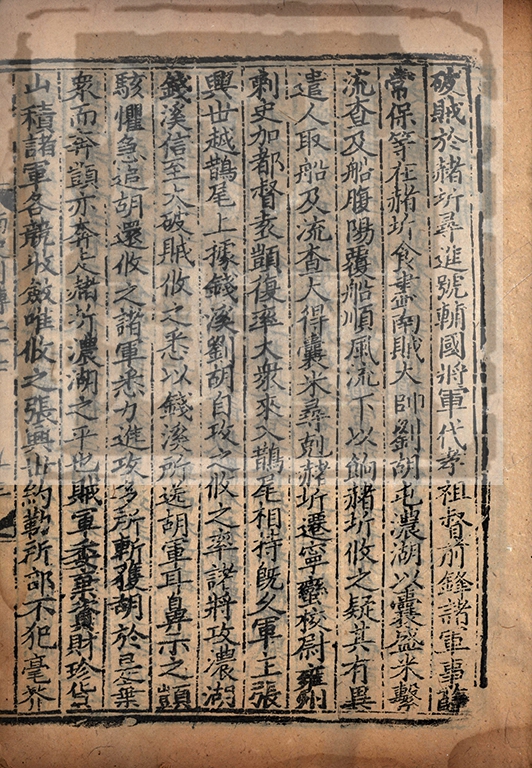 破賊於赭圻尋進號輔國將軍代孝祖督前鋒諸軍事薛
常保等在赭圻食盡南賊大帥劉胡屯濃湖以囊盛米繫
流查及船腹陽覆船順風流下以餉赭圻攸之疑其有異
遣人取船及流查大得囊米尋剋赭圻遷寧蠻校尉雍州
刺史加都督袁顗復率大衆來入鵲尾相持旣久軍主張
興世越鵲尾上據錢溪劉胡自攻之攸之率諸將攻濃湖
錢溪信至大破賊攸之悉以錢溪所送胡軍耳鼻示之顗
駭懼急追胡還攸之諸軍悉力進攻多所斬獲胡於是棄
衆而奔顗亦奔走赭圻濃湖之平也賊軍委棄資財珍貨
山積諸軍各競收斂唯攸之張興世約勒所部不犯毫芥